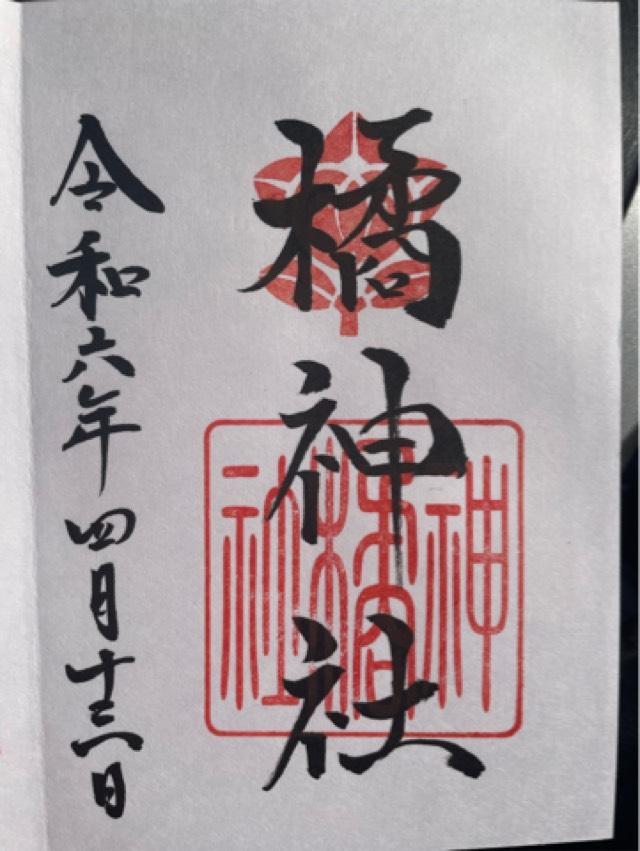 橘神社
橘神社
令和六年四月十三日